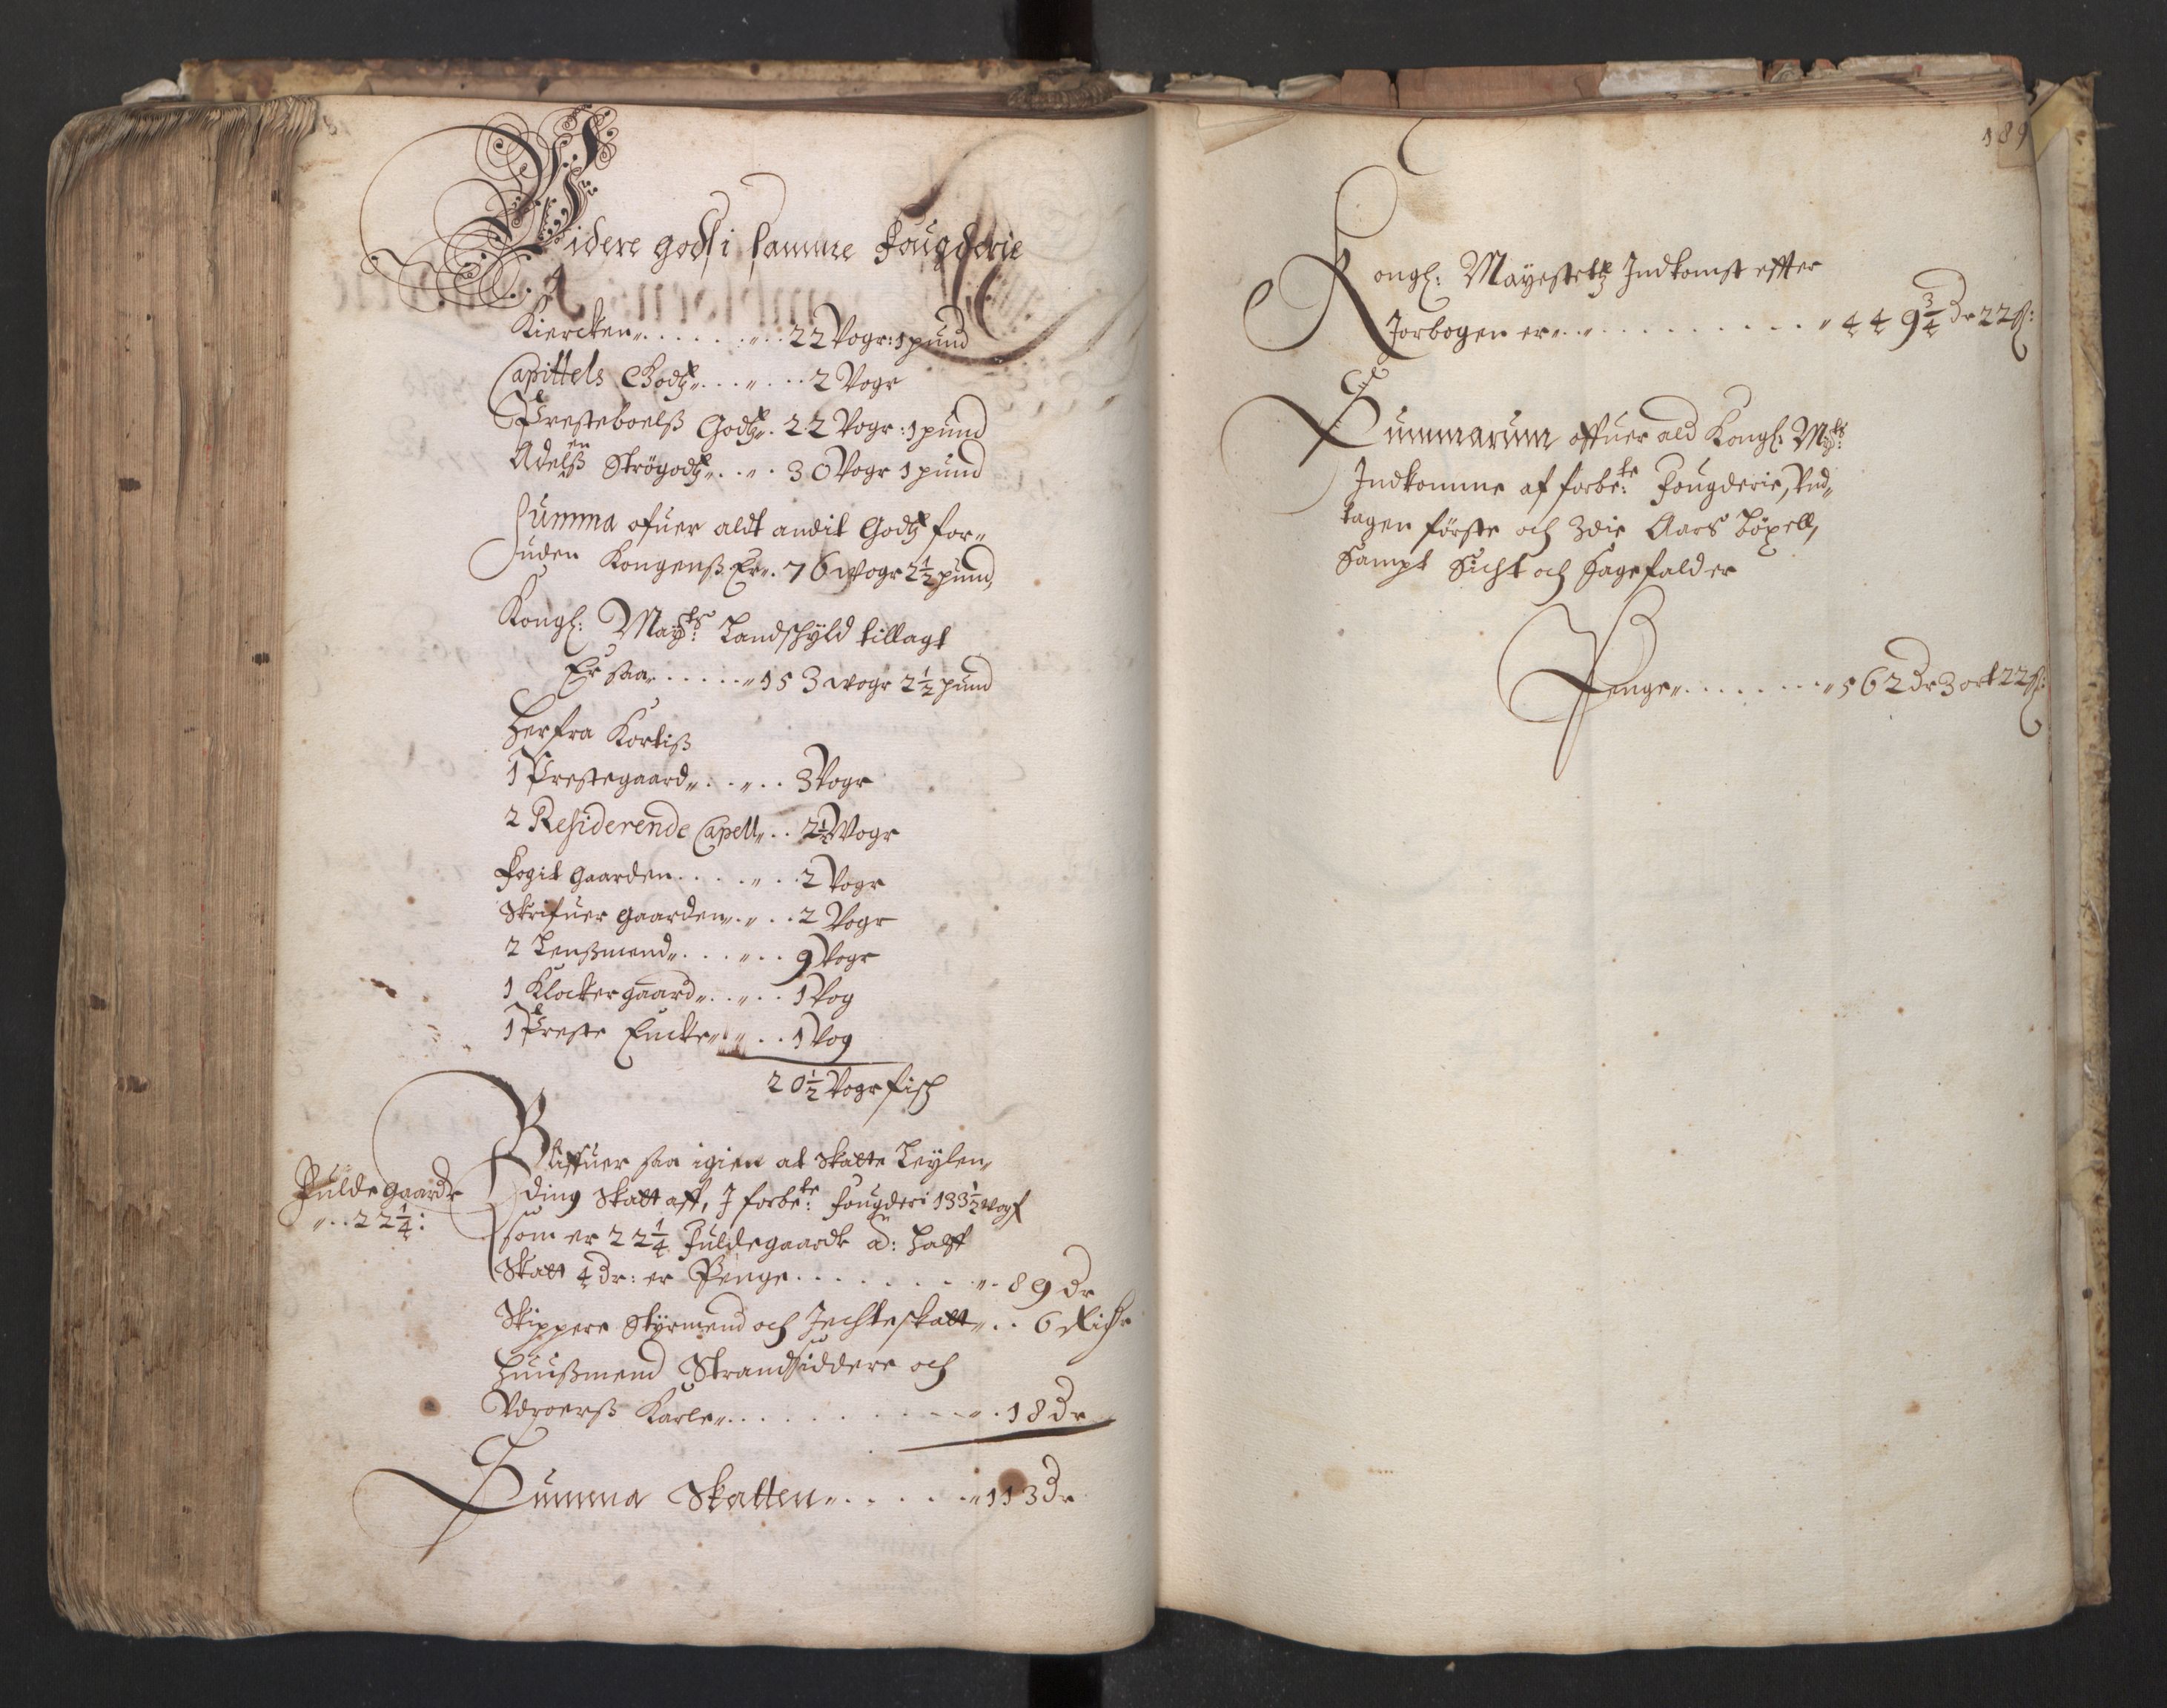 Videre godß i samme Fougderie
Kiercken„ . . . . . „ . . 22 Vogr: 1 pund
Capittels Godtz„ . . . „ . . . 2 Vogr
Presteboelß Godtz„ . 22 Vogr: 1 pund
Adelßen Strögodtz„ . . „ . 30 Vogr 1 pund
Summa ofuer aldt andit Godtz for„
uden Kongenß Er„ . 76 wogr 2½ pund,
Kongl: Mayts: Landschyld tillagt
Er saa„ . . . . . „ 153 wogr 2½ pund
Herfra Kortiß
1 Prestegaard„ . . „ . . 3 Vogr
2 Residerende Capell„ . . 2½ Vogr
Fogit Gaarden . . . . „ . . 2 Vogr
Skrifuer gaarden„ . „ . . 2 Vogr
2 Lenßmend„ . . . „ . . 9 Vogr
1 Klocker gaard„ . . „ . . 1 Vog
1 Preste Encke„ . „ . . 1 Vog
20½ Vogr fisch
Bliffuer saa igien at Skatte Leylen„
ding Skatt aff, I forbete: Fougderi 133½ wogr
Fulde gaarde
„ . . 22¼:
som er 22¼ Fuldegaarde â: Halff
Skatt 4 Dr: er Penge . . . . . . . „ . 89 Dr
Skippere Styrmend och Jechteskatt„ . . 6 Richr
Huußmend Strandsiddere och
Vdroerß Karle„ . . . . . . . . . „ . 18 Dr
Summa Skatten„ . . . . . „ 113 Dr
189
Kongl: Mayestetz Indkomst effter
Jorbogen er„ . . „ . . . . . . . . . „ 449¾ Dr 22 ß:
Summarum offuer ald Kongl: Mayts:
Indkomme af forbete: Fougderie, Vnd„
tagen förste och 3die Aars Böxell,
Sampt Sicht och Sagefald er
Penge„ . . . . . . . „ 562 Dr 3 ort 22 ß: